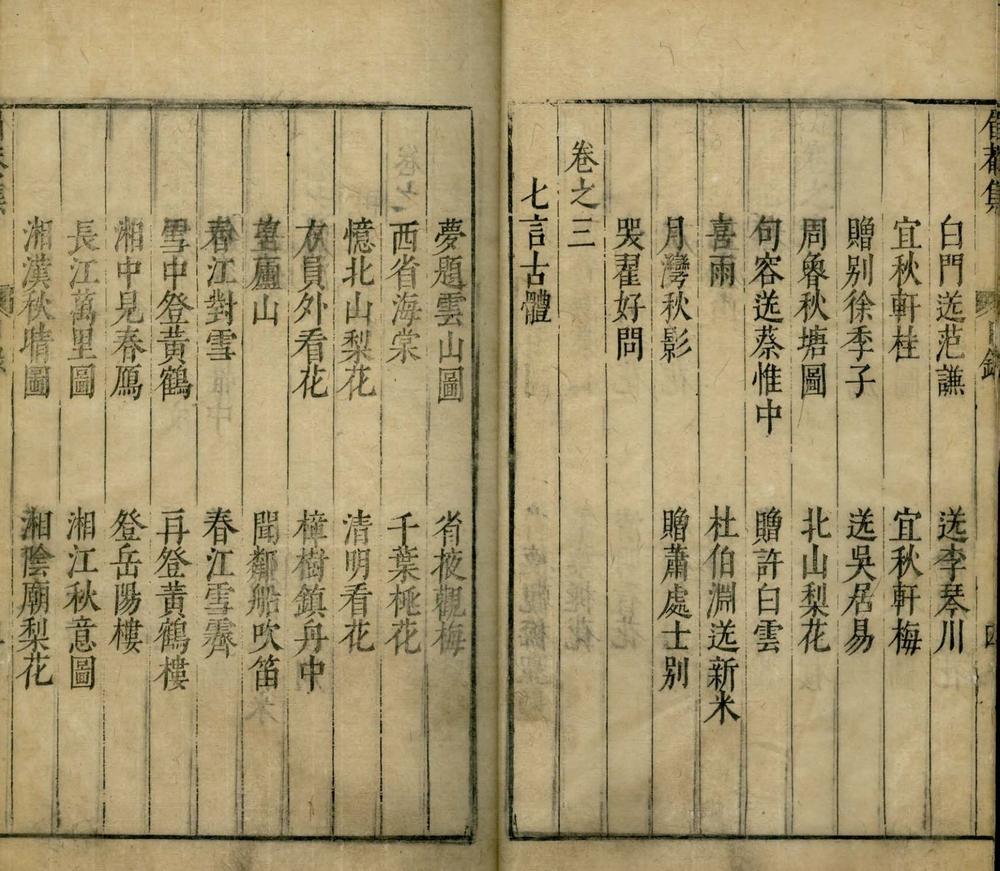 白門送范謙　送李琴川
宜秋軒桂　宜秋軒梅
贈别徐季子　送吳居易
周魯秋塘圖　北山梨花
句容送蔡惟中　贈許白雲
喜雨　杜伯淵送新米
月灣秋影　贈蕭處士别
哭翟好問
卷之三
七言古體
夢題雲山圖　省掖觀梅
西省海棠　千葉桃花
憶北山梨花　清明看花
友員外看花　樟樹鎮舟中
望廬山　聞鄰船吹笛
春江對雪　春江雪霽
雪中登黃鶴　再登黃鶴樓
湘中見春鴈　登岳陽樓
長江萬里圖　湘江秋意圖
湘漢秋晴圖　湘陰廟梨花